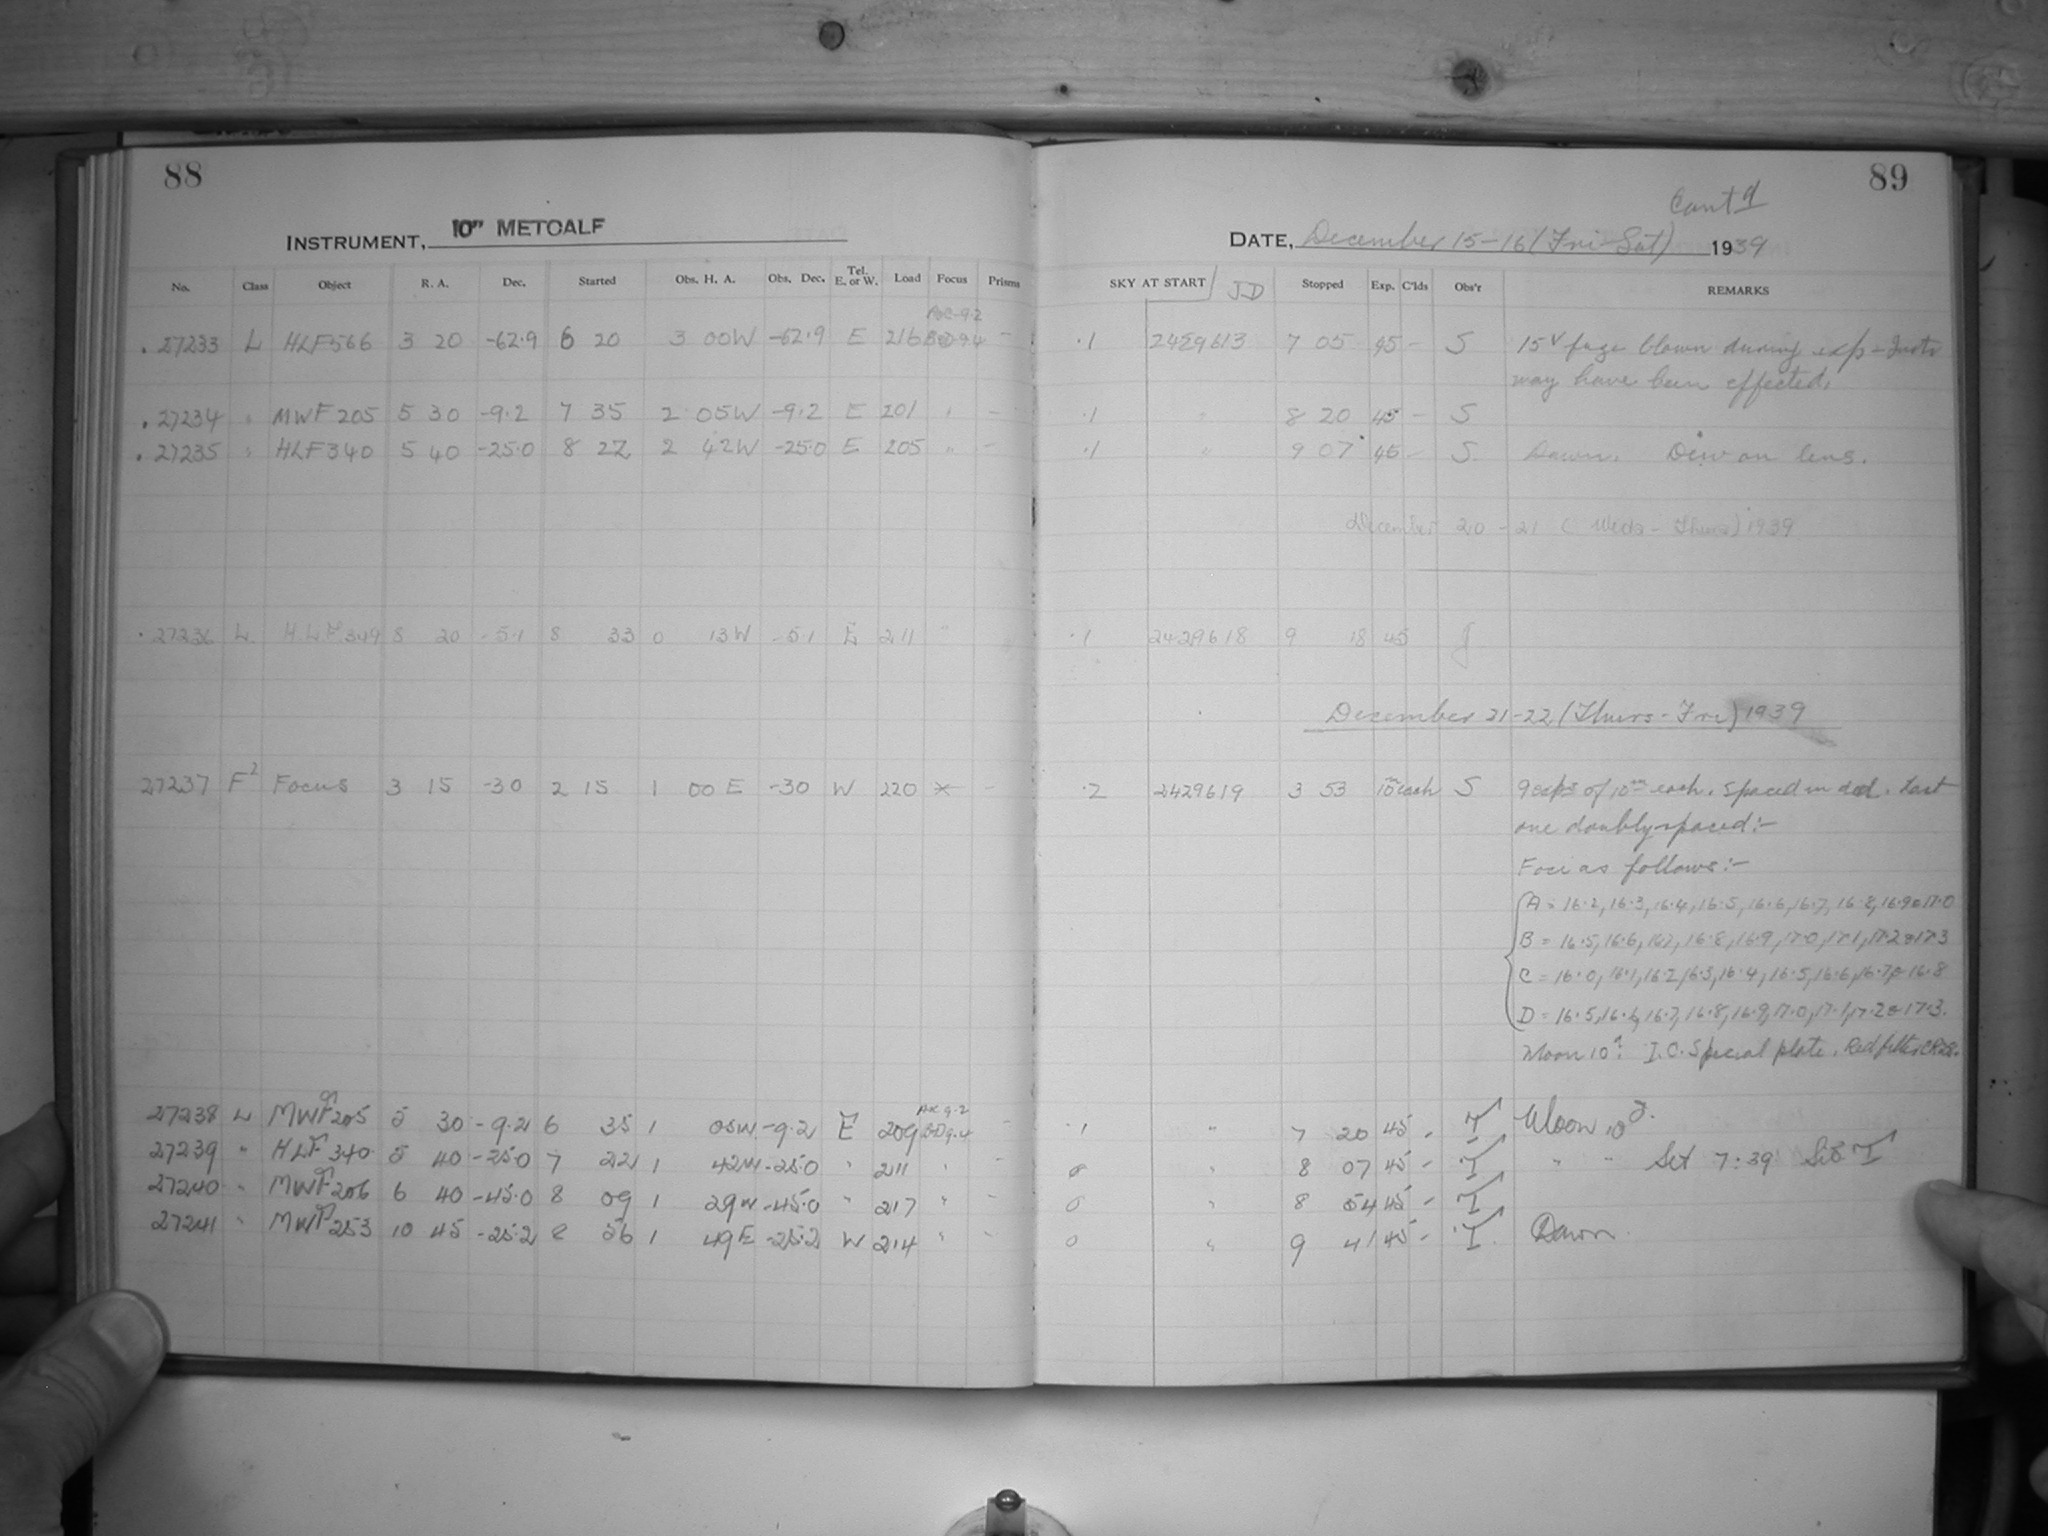 88
INSTRUMENT, 10" METCALF
No. Class Object R. A. Dec. Started Obs. H. A. Obs. Dec. Tel. E. or W. Load Focus Prisms
. 27233 L HLF566 3 20 -62.9 6 20 3 00W -62.9 E 216 –
. 27234 " MWF205 5 30 -9.2 7 35 2 05W -9.2 E 201 " –
. 27235 " HLF340 5 40 -25.0 8 22 2 42W -25.0 E 205 " –
. 27236 L HLF349 8 20 -5.1 8 33 0 13W -5.1 E 211 "
27237 F2 Focus 3 15 -30 2 15 1 00E -30 W 220 * –
27238 L MWF205 5 30 -9.2 6 35 1 05W -9.2 E 209 AC 9.2 BD 9.4 –
27239 " HLF340 5 40 -25.0 7 22 1 42W -25.0 " 211 " –
27240 " MWF206 6 40 -45.0 8 09 1 29W -45.0 " 217 " –
27241 " MWF253 10 45 -25.2 8 56 1 49E -25.2 W 214 " –
89
Cont'd
DATE, December 15-16 (Fri-Sat) 1939
SKY AT START JD Stopped Exp. C'lds Obs'r REMARKS
.1 2429613 7 05 45 – S 15V fuze blown during exp – Insts
may have been effected.
.1 " 8 20 45 – S
.1 " 9 07 45 – S Dawn. Dew on lens.
December 20-21 (Weds-Thurs) 1939
.1 2429618 9 18 45 J
December 21-22 (Thurs-Fri) 1939
.2 2429619 3 53 10m each S 9 exps of 10m each. Spaced in dec. Last
one doubly spaced:-
Foci as follows:-
A = 16.2, 16.3, 16.4, 16.5, 16.6, 16.7, 16.8, 16.9 & 17.0
B = 16.5, 16.6, 16.7, 16.8, 16.9, 17.0, 17.1, 17.2 & 17.3
C = 16.0, 16.1, 16.2, 16.3, 16.4, 16.5, 16.6, 16.7 & 16.8
D = 16.5, 16.6, 16.7, 16.8, 16.9, 17.0, 17.1, 17.2 & 17.3.
Moon 10d. I.C. Special plate. Red filter
.1 " 7 20 45 – T Moon 10d.
0 " 8 07 45 – T " " Set 7:39
0 " 8 54 45 – T
0 " 9 41 45 – T Dawn.